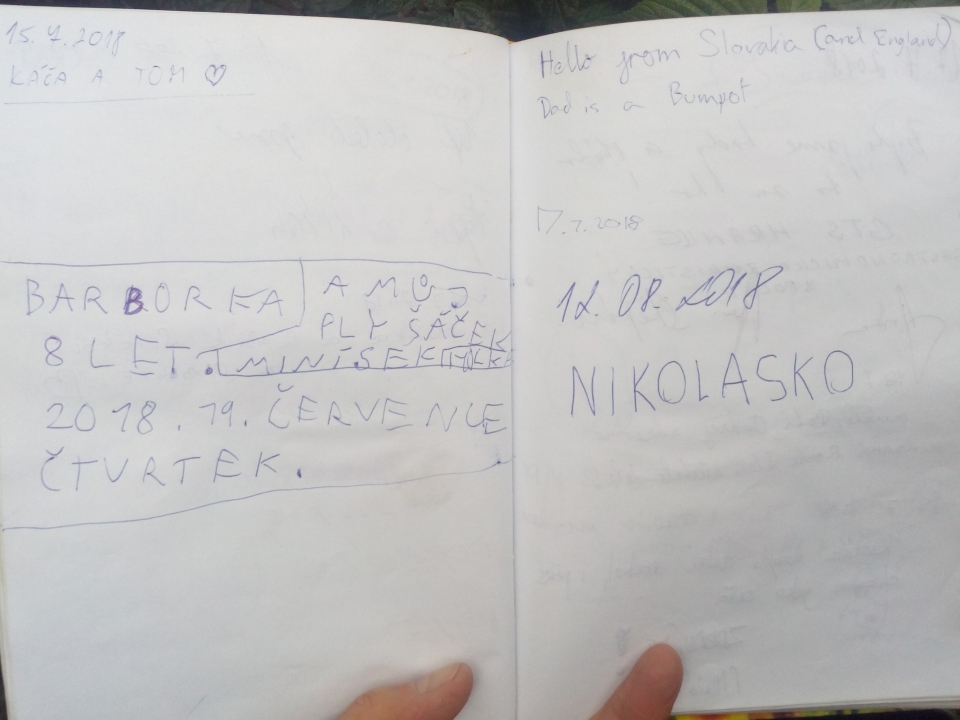 15.7.2018
KÁČA A TOM ♡
BARBORKA
8 LET.
A MŮJ
PLYŠÁČEK
MINÍSEK
2018. 19. ČERVENCE
ČTVRTEK.
Hello from Slovakia (and England)
Dad is a Bumpot
17.7.2018
12.08.2018
NIKOLASKO